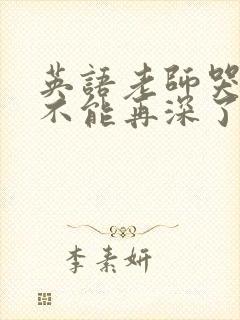 英語老師哭
不能再深了
李素妍